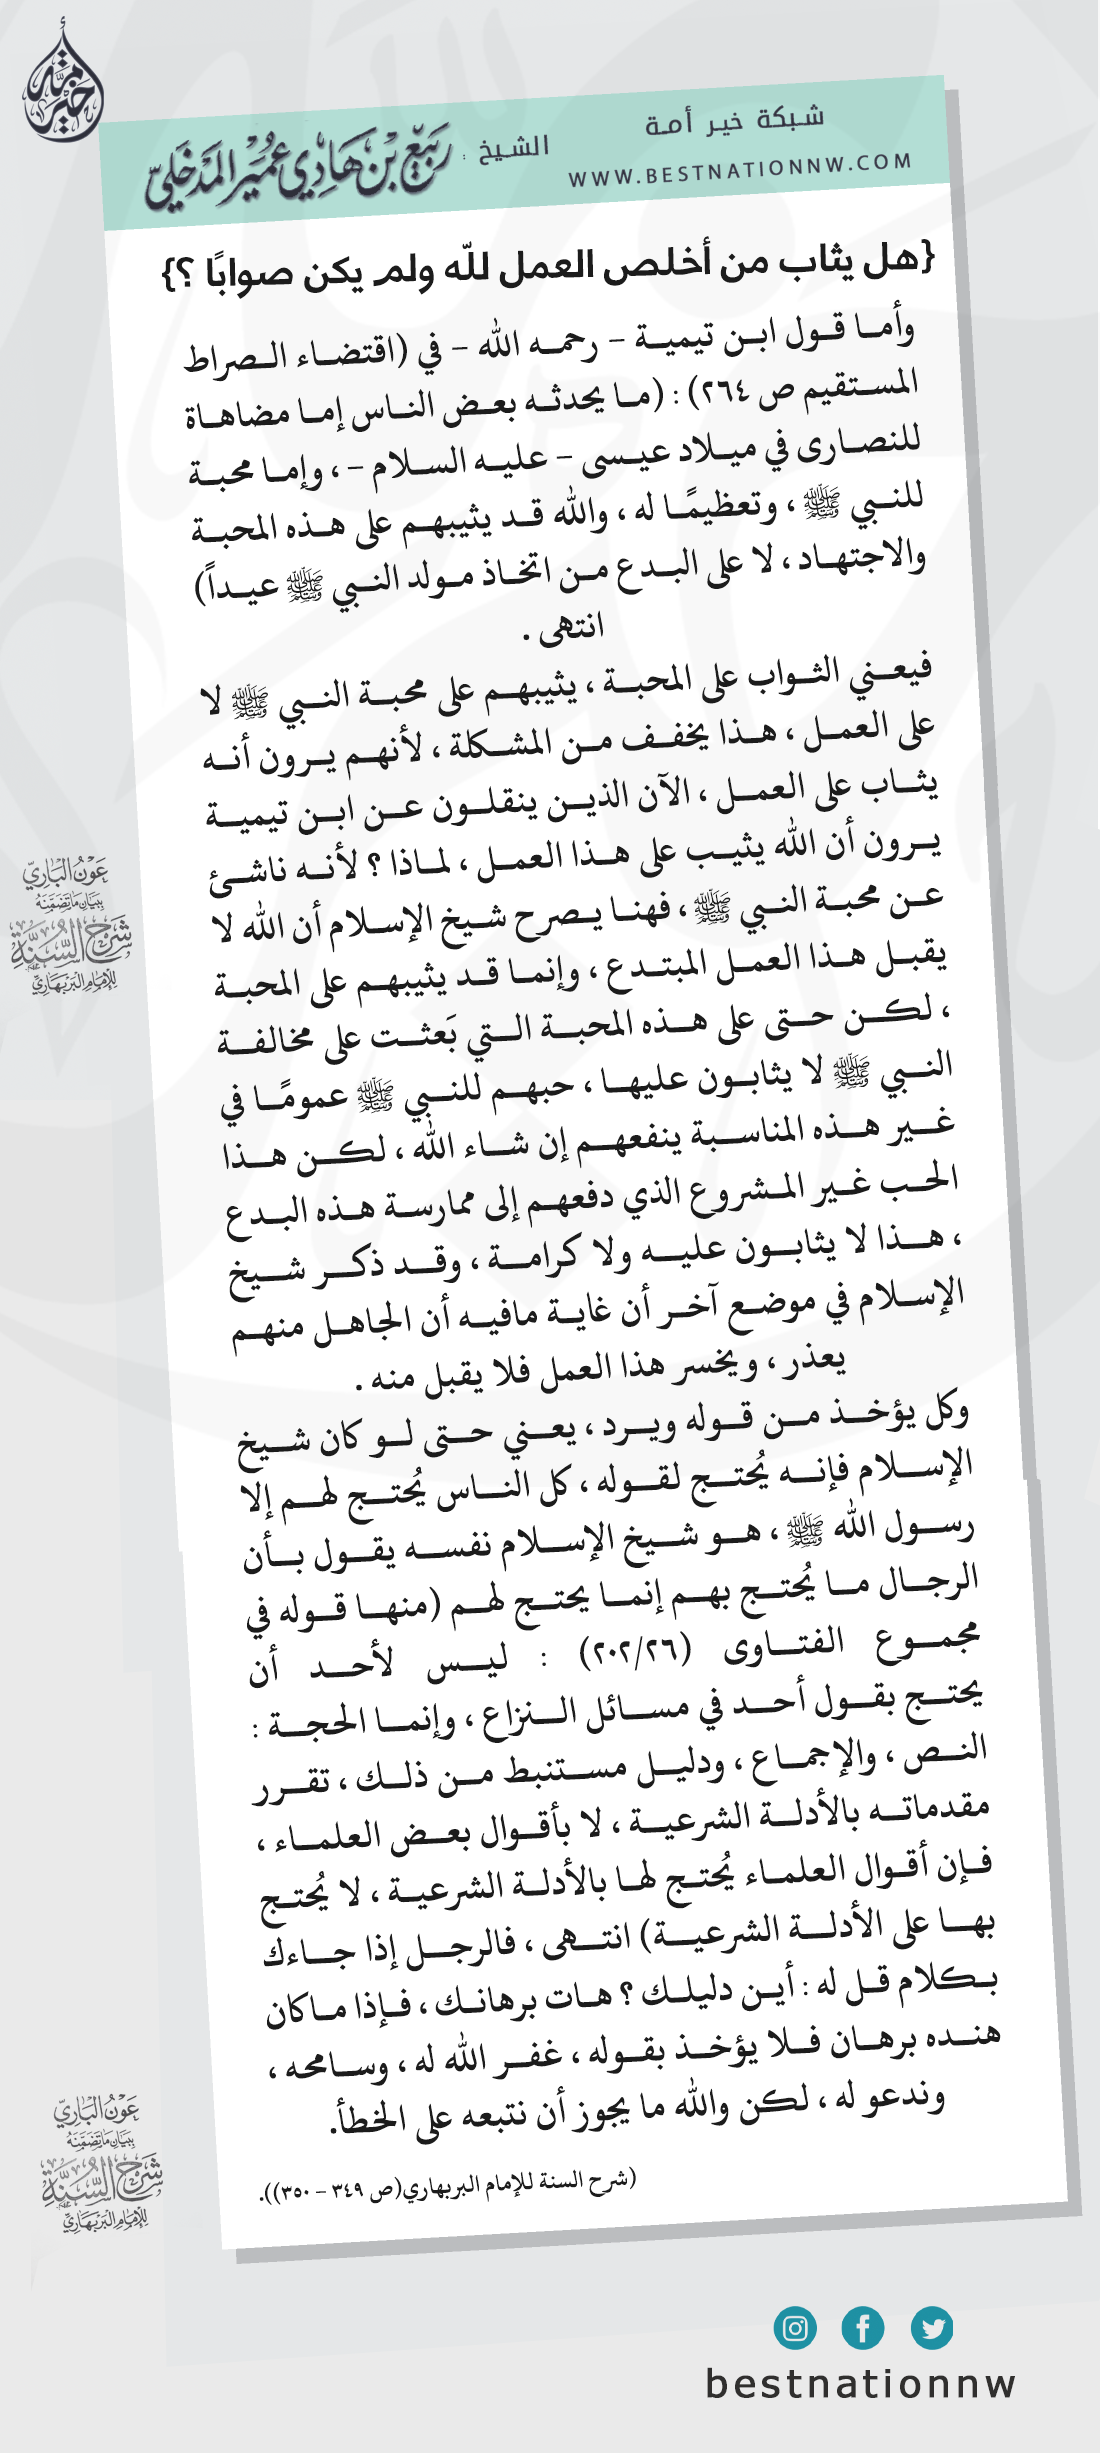 شبكة خير أمة
WWW.BESTNATIONNW.COM
الشيخ :
رَبِيْع بْن هَادِي عُمَيْر المَدْخَلِيّ
{هل يثاب من أخلص العمل للّه ولم يكن صوابًا ؟}
وأما قول ابن تيمية - رحمه الله - في (اقتضاء الصراط
المستقيم ص ٢٦٤) : (ما يحدثه بعض الناس إما مضاهاة
للنصارى في ميلاد عيسى - عليه السلام - ، وإما محبة
للنبي ﷺ ، وتعظيمًا له ، والله قد يثيبهم على هذه المحبة
والاجتهاد ، لا على البدع من اتخاذ مولد النبي ﷺ عيداً)
انتهى .
فيعني الثواب على المحبة ، يثيبهم على محبة النبي ﷺ لا
على العمل ، هذا يخفف من المشكلة ، لأنهم يرون أنه
يثاب على العمل ، الآن الذين ينقلون عن ابن تيمية
يرون أن الله يثيب على هذا العمل ، لماذا ؟ لأنه ناشئ
عن محبة النبي ﷺ ، فهنا يصرح شيخ الإسلام أن الله لا
يقبل هذا العمل المبتدع ، وإنما قد يثيبهم على المحبة
، لكن حتى على هذه المحبة التي بَعثت على مخالفة
النبي ﷺ لا يثابون عليها ، حبهم للنبي ﷺ عمومًا في
غير هذه المناسبة ينفعهم إن شاء الله ، لكن هذا
الحب غير المشروع الذي دفعهم إلى ممارسة هذه البدع
، هذا لا يثابون عليه ولا كرامة ، وقد ذكر شيخ
الإسلام في موضع آخر أن غاية مافيه أن الجاهل منهم
يعذر ، ويخسر هذا العمل فلا يقبل منه .
وكل يؤخذ من قوله ويرد ، يعني حتى لو كان شيخ
الإسلام فإنه يُحتج لقوله ، كل الناس يُحتج لهم إلا
رسول الله ﷺ ، هو شيخ الإسلام نفسه يقول بأن
الرجال ما يُحتج بهم إنما يحتج لهم (منها قوله في
مجموع الفتاوى (٢٠٢/٢٦) : ليس لأحد أن
يحتج بقول أحد في مسائل النزاع ، وإنما الحجة :
النص ، والإجماع ، ودليل مستنبط من ذلك ، تقرر
مقدماته بالأدلة الشرعية ، لا بأقوال بعض العلماء ،
فإن أقوال العلماء يُحتج لها بالأدلة الشرعية ، لا يُحتج
بها على الأدلة الشرعية) انتهى ، فالرجل إذا جاءك
بكلام قل له : أين دليلك ؟ هات برهانك ، فإذا ماكان
هنده برهان فلا يؤخذ بقوله ، غفر الله له ، وسامحه ،
وندعو له ، لكن والله ما يجوز أن نتبعه على الخطأ.
(شرح السنة للإمام البربهاري(ص ٣٤٩ - ٣٥٠)).
خير أمة
عَوْنُ البَارِيّ
بِبَيَانِ مَا تَضَمَّنَهُ
شَرْحُ السُّنَّةِ
لِلْإِمَامِ البَرْبَهَارِيِّ
عَوْنُ البَارِيّ
بِبَيَانِ مَا تَضَمَّنَهُ
شَرْحُ السُّنَّةِ
لِلْإِمَامِ البَرْبَهَارِيِّ
bestnationnw